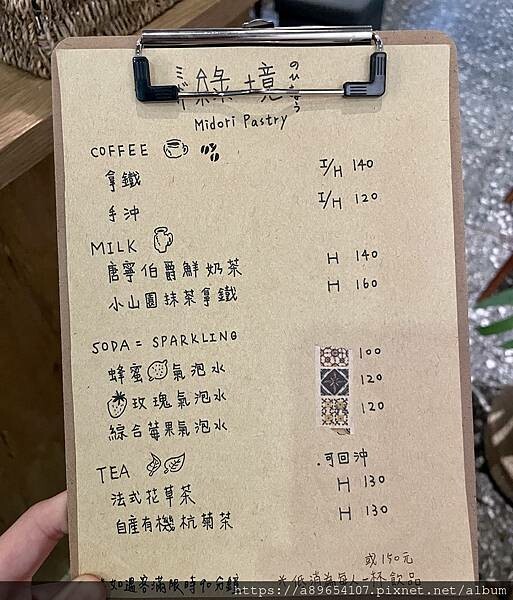 綠境
Midori Pastry
COFFEE
拿鐵 I/H 140
手沖 I/H 120
MILK
唐寧伯爵鮮奶茶 H 140
小山園抹茶拿鐵 H 160
SODA = SPARKLING
蜂蜜氣泡水 100
玫瑰氣泡水 120
綜合莓果氣泡水 120
TEA .可回沖
法式花草茶 H 130
自産有機杭菊茶 H 130
或150元
如遇客滿限時90分鐘 ※低消為每人一杯飲品
https://a89654107.pixnet.net/album